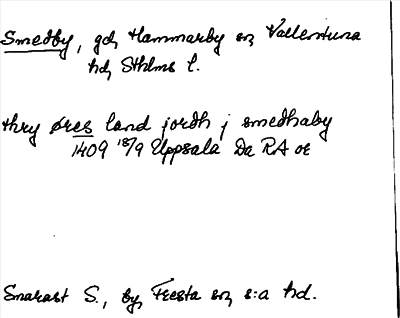 Smedby, gd, Hammarby sn, Vallentuna
hd, Sthlms l.
thry øres land jordh j smedhaby
1409 18/9 Uppsala Da RA oe
Smarast S., by, Fresta sn, s:a hd.